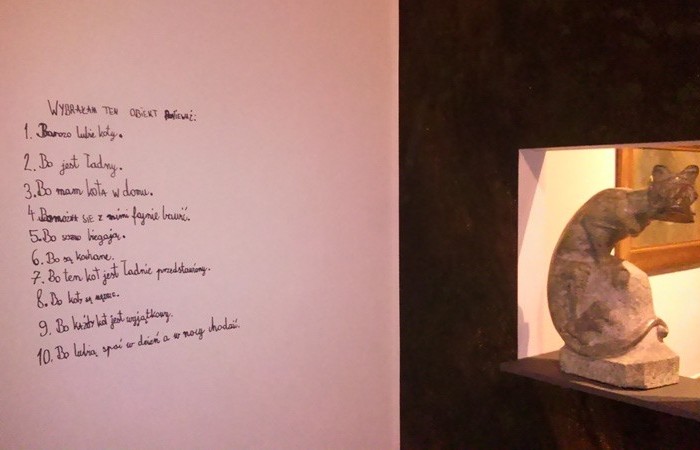 WYBRAŁAM TEN OBIEKT PONIEWAŻ:
1. Bardzo lubię koty.
2. Bo jest ładny.
3. Bo mam kota w domu.
4. Bo można się z nimi fajnie bawić.
5. Bo szybko biegają.
6. Bo są kochane.
7. Bo ten kot jest ładnie przedstawiony.
8. Bo koty są
9. Bo każdy kot jest wyjątkowy.
10. Bo lubią spać w dzień a w nocy chodzić.